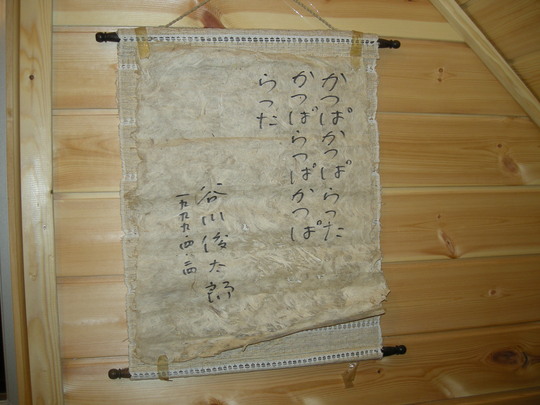 かっぱかっぱらった
かっぱらっぱかっぱ
らった
谷川俊太郎
一九九九・四・二四